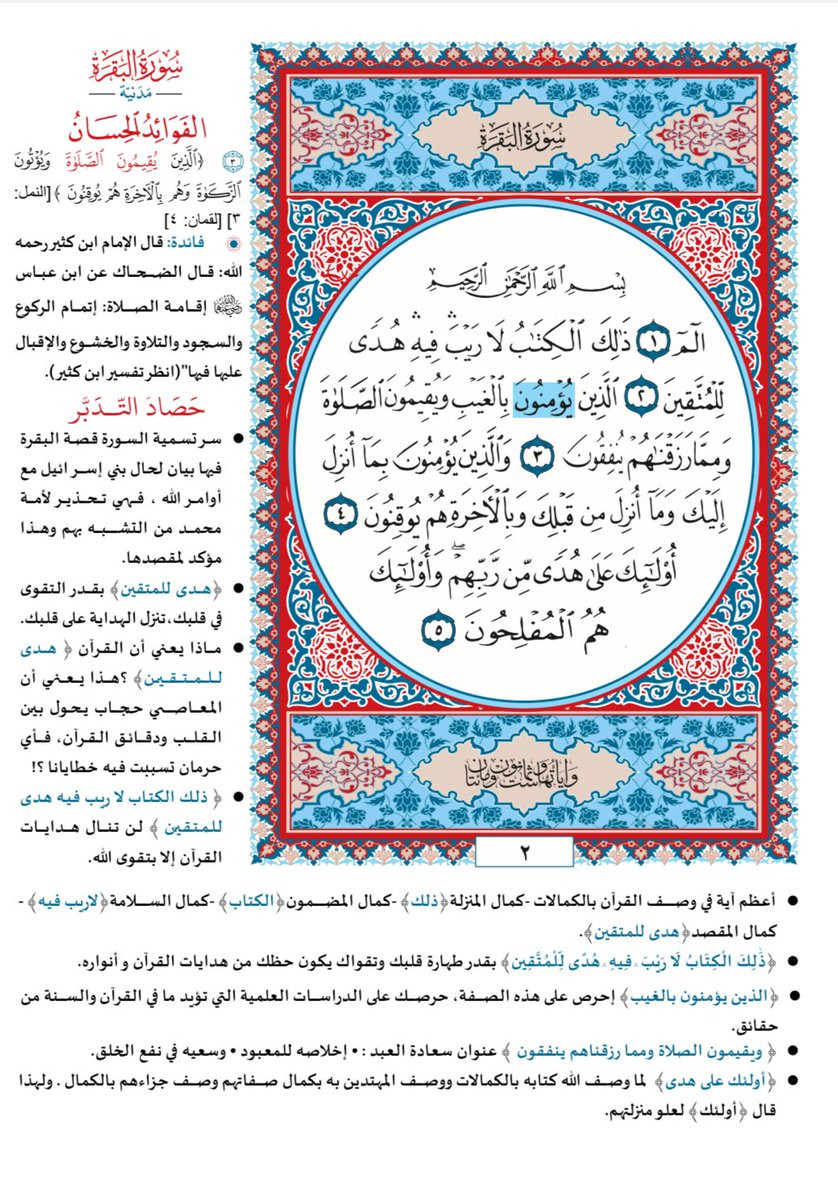 سُورَةُ البَقَرَةِ
مَدَنيّة
الفَوَائِدُ الحِسَانُ
٣ ﴿الَّذِينَ يُقِيمُونَ الصَّلَوٰةَ وَيُؤْتُونَ
الزَّكَوٰةَ وَهُم بِالْآخِرَةِ هُمْ يُوقِنُونَ ﴾ [النمل:
٣] [لقمان: ٤]
فائدة: قال الإمام ابن كثير رحمه
الله: قال الضحاك عن ابن عباس
إقامة الصلاة: إتمام الركوع
والسجود والتلاوة والخشوع والإقبال
عليها فيها"(انظر تفسير ابن كثير).
حَصَادَ التَّدَبَّر
سر تسمية السورة قصة البقرة
فيها بيان لحال بني إسرائيل مع
أوامر الله ، فهي تحذير لأمة
محمد من التشبه بهم وهذا
مؤكد لمقصدها.
﴿هدى للمتقين﴾ بقدر التقوى
في قلبك،تنزل الهداية على قلبك.
ماذا يعني أن القرآن ﴿ هدى
للمتقين﴾ ؟هذا يعني أن
المعاصي حجاب يحول بين
القلب ودقائق القرآن، فأي
حرمان تسببت فيه خطايانا ؟!
﴿ ذلك الكتاب لا ريب فيه هدى
للمتقين ﴾ لن تنال هدايات
القرآن إلا بتقوى الله.
سُورَةُ البَقَرَةِ
بِسْمِ ٱللَّهِ ٱلرَّحْمَٰنِ ٱلرَّحِيمِ
الٓمٓ ١ ذَٰلِكَ ٱلْكِتَٰبُ لَا رَيْبَۛ فِيهِۛ هُدًى
لِّلْمُتَّقِينَ ٢ ٱلَّذِينَ يُؤْمِنُونَ بِٱلْغَيْبِ وَيُقِيمُونَ ٱلصَّلَوٰةَ
وَمِمَّا رَزَقْنَٰهُمْ يُنفِقُونَ ٣ وَٱلَّذِينَ يُؤْمِنُونَ بِمَآ أُنزِلَ
إِلَيْكَ وَمَآ أُنزِلَ مِن قَبْلِكَ وَبِٱلْءَاخِرَةِ هُمْ يُوقِنُونَ ٤
أُوْلَٰٓئِكَ عَلَىٰ هُدًى مِّن رَّبِّهِمْۖ وَأُوْلَٰٓئِكَ
هُمُ ٱلْمُفْلِحُونَ ٥
وَاٰيَاتُهَا مِائَتَانِ وَسِتٌّ وَثَمَانُونَ
٢
أعظم آية في وصف القرآن بالكمالات -كمال المنزلة﴿ذلك﴾ -كمال المضمون﴿الكتاب﴾ -كمال السلامة﴿لاريب فيه﴾ -
كمال المقصد﴿هدى للمتقين﴾.
﴿ذَٰلِكَ الْكِتَابُ لَا رَيْبَ ۛ فِيهِ ۛ هُدًى لِّلْمُتَّقِينَ﴾ بقدر طهارة قلبك وتقواك يكون حظك من هدايات القرآن و أنواره.
﴿الذين يؤمنون بالغيب﴾ إحرص على هذه الصفة، حرصك على الدراسات العلمية التي تؤيد ما في القرآن والسنة من
حقائق.
﴿ ويقيمون الصلاة ومما رزقناهم ينفقون ﴾ عنوان سعادة العبد : • إخلاصه للمعبود • وسعيه في نفع الخلق.
﴿أولئك على هدى﴾ لما وصف الله كتابه بالكمالات ووصف المهتدين به بكمال صفاتهم وصف جزاءهم بالكمال . ولهذا
قال ﴿أولئك﴾ لعلو منزلتهم.